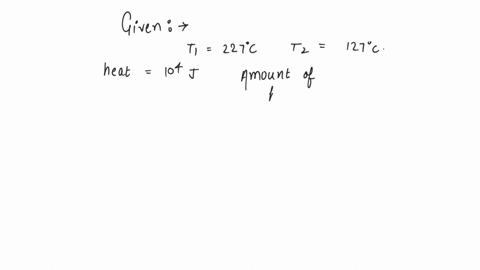 Given:→
T1 = 227°C T2 = 127°C.
heat = 10⁴ J Amount of